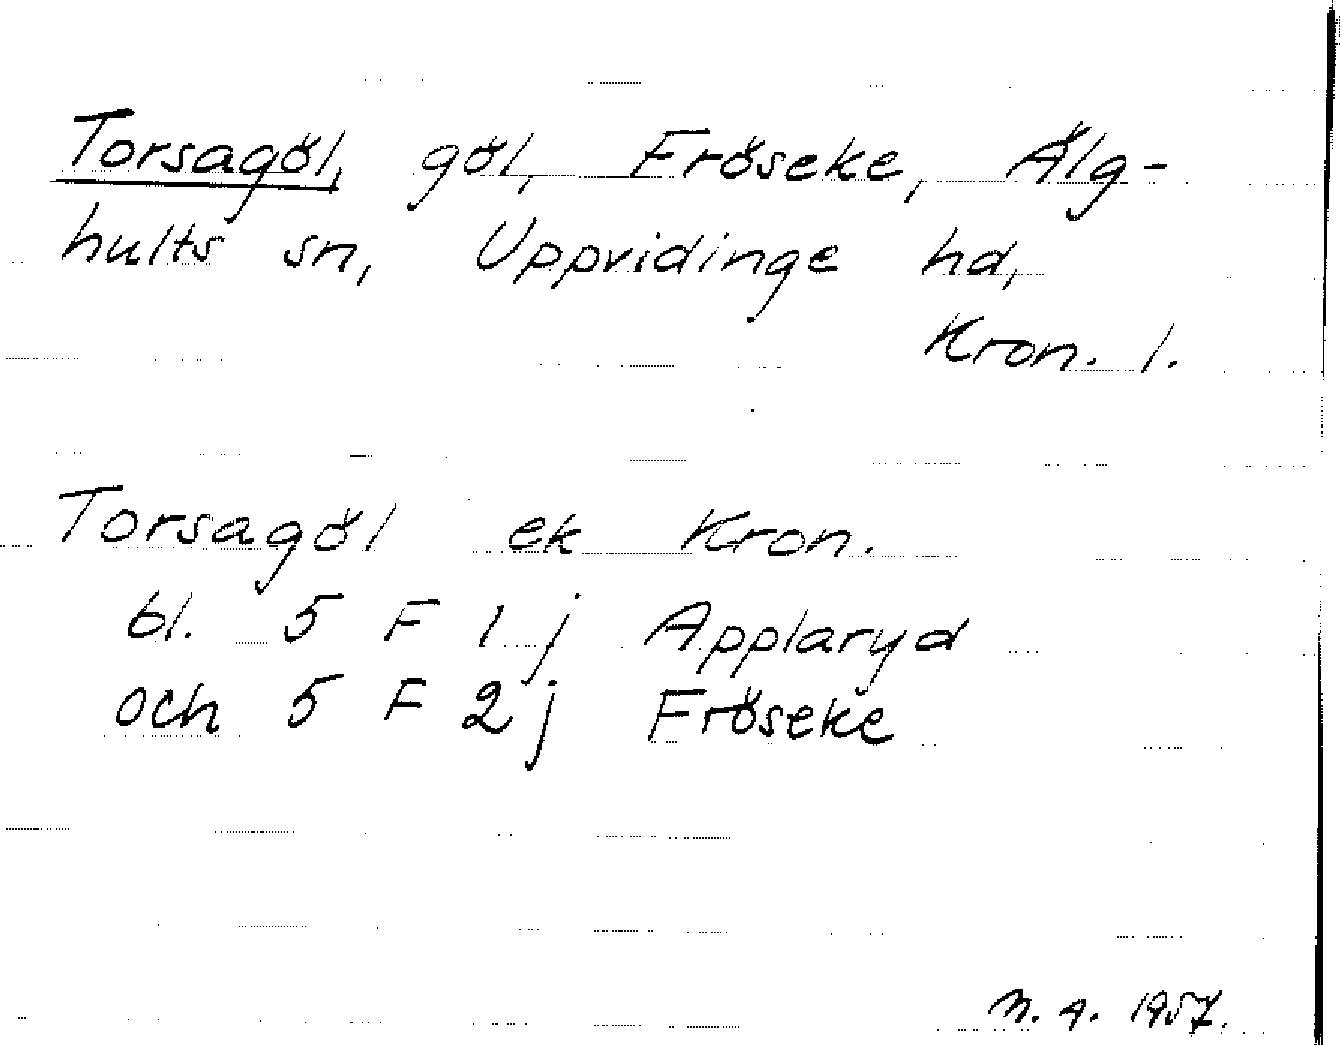 Torsagöl, göl, Fröseke, Älg-
hults sn, Uppvidinge hd,
Kron. l.
Torsagöl ek Kron.
bl. 5 F 1 j Applaryd
och 5 F 2 j Fröseke
1957.